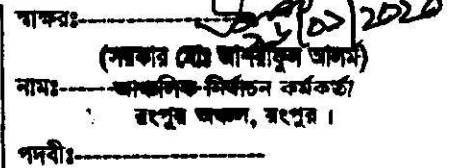 স্বাক্ষরঃ---------------- 26/01/2020
(সরকার মোঃ আশরাফুল আলম)
নামঃ------আঞ্চলিক নির্বাচন কর্মকর্তা
রংপুর অঞ্চল, রংপুর ।
পদবীঃ------------------------